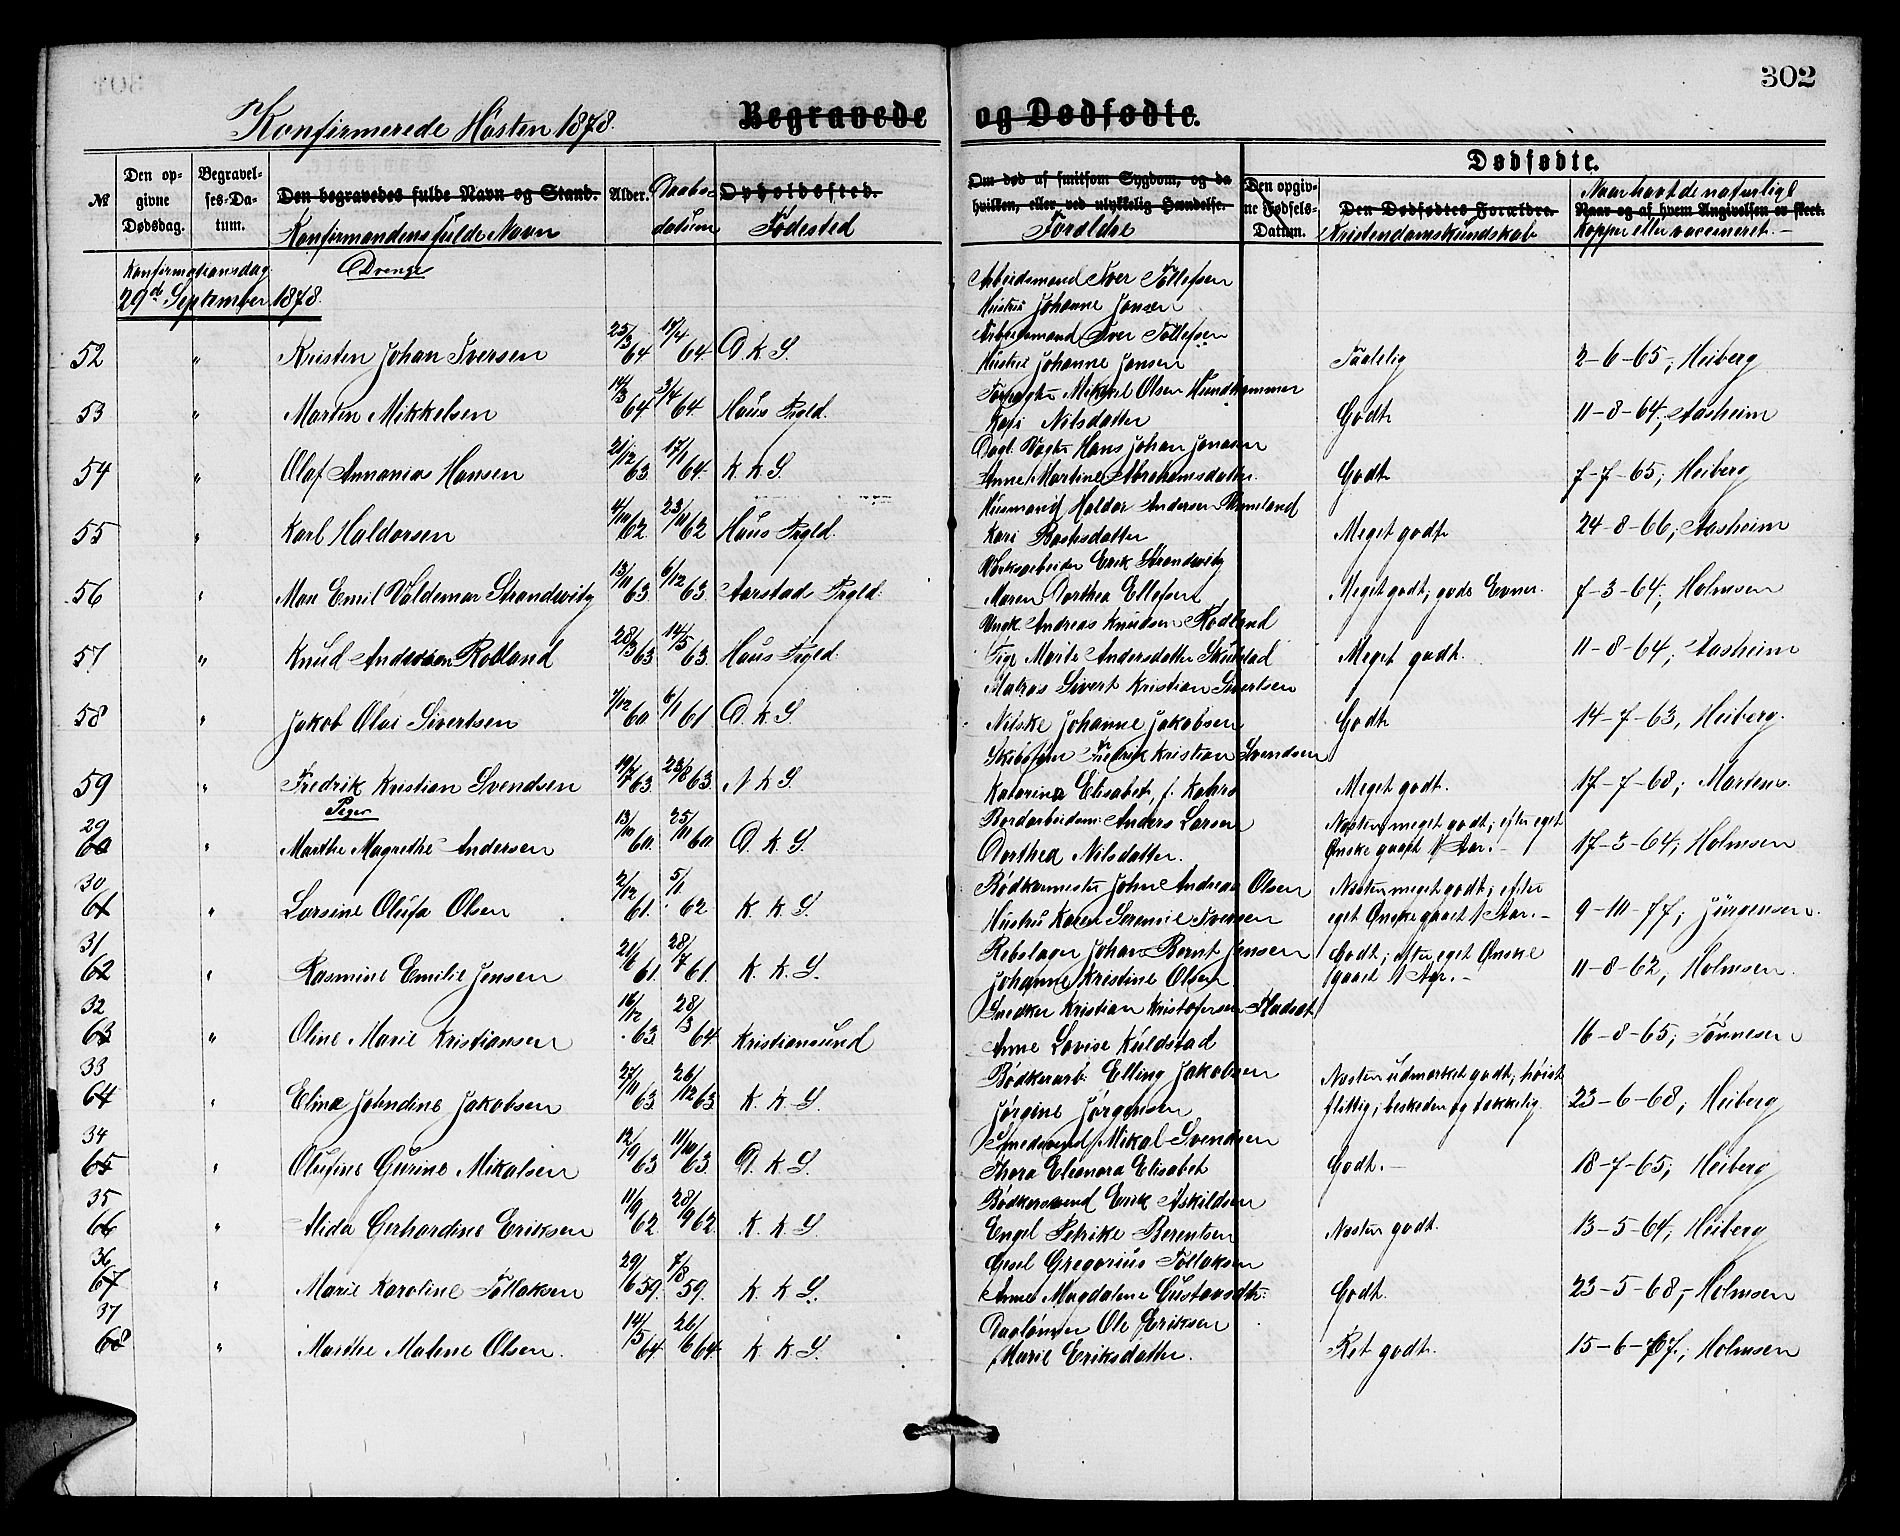 302
Konfirmerede Høsten 1878.
Begravede og Dødfødte.
Dødfødte.
№
Den opgivne Dødsdag.
Begravelses-Datum.
Den begravedes fulde Navn og Stand.
Konfirmandens fulde Navn
Alder.
Daabsdatum
Opholdssted.
Fødested
Om død af smitsom Sygdom, og da hvilken, eller ved ulykkelig Hændelse.
Forældre
Den opgivne Fødsels-Datum.
Den Dødfødtes Forældre.
Kristendomskundskab
Naar og af hvem Angivelsen er skeet.
Naar havt de naturlige Kopper eller vaccineret.
Konfirmationsdag
29d September 1878.
Drenge
Arbeidsmand Iver Tollefsen
Hustru Johanne Jansen
Arbeidsmand Iver Tollefsen
52 " Kristen Johan Iversen 25/3 64 17/4 64. D. K. S. Hustru Johanne Jansen Taalelig 2-6-65, Heiberg
Mikael Olsen Hundhammer
53 " Martin Mikkelsen 14/3 64 3/4 64 Haus Prgld. Kari Nilsdatter Godt 11-8-64, Aasheim
Hans Johan Jonasen
54 " Olaf Annanias Hansen 21/12 63 17/1 64. K. K. S. Anne Martine Abrahamsdatter. Godt 7-7-65, Heiberg
Husmand Haldor Andersen
55 " Karl Haldorsen 4/10 62. 23/11 62 Haus Prgld. Kari Meget godt 24-8-66, Aasheim
Værksarbeider Erik Strandwitz
56 " Mon Emil Valdemar Strandwitz 13/11 63 6/12 63. Aarstad Prgld. Maren Dorthea Ellefsen Meget godt, gode Evner. 7-3-64, Holmsen
Ungk. Andreas Knudsen Rødland
57 " Knud Andersen Rødland 28/3 63 14/5 63. Haus Prgld. Pige Marte Andersdatter Meget godt. 11-8-64, Aasheim
Matros Sivert Kristian Sivertsen
58 " Jakob Olai Sivertsen 7/12 60. 6/1 61 D. K. S. Nilske Johanne Jakobsen Godt 14-7-63, Heiberg.
Fredrik Kristian Svendsen
59 " Fredrik Kristian Svendsen 19/7 63. 23/8 63. N. K. S. Katarina Elisabet, f. Kahrs Meget godt. 17-7-68, Martens.
Piger
Bordarbeider Anders Larsen Næsten meget godt; efter eget
29 60 " Marthe Magrethe Andersen 13/10 60. 25/11 60 D. K. S. Dorthea Nilsdatter. Ønske gaaet 1 Aar.- 17-3-64, Holmsen
Bødkermester John Andreas Olsen Næsten meget godt; efter
30 61 " Larsine Olufa Olsen 2/12 61. 5/1 62. K. K. S. Hustru Karen Serensie Iversen eget Ønske gaaet 1 Aar.- 9-10-77, Jürgensen.
Rebslager Johan Bernt Jensen Godt; efter eget Ønske
31 62 " Rasmine Emilie Jensen 21/6 61. 28/7 61. K. K. S. Johanne Kristine Olsen. gaaet 1 Aar.- 11-8-62, Holmsen.
Snedker Kristian Kristofersen
32 63 " Oline Marie Kristiansen 16/12 63. 28/3 64 Kristiansund Anne Lovise Kuldstad 16-8-65, Tønnesen
Bødkerarb. Elling Jakobsen Næsten udmærket godt; høist
33 64 " Elina Johndine Jakobsen 27/11 63. 26/12 63. K. K. S. Jørgine Jørgensen flittig, beskeden og tækkelig. 23-6-68, Heiberg
Smedsvend Mikal Svendsen
34 65 " Olufine Gurine Mikalsen 12/9 63 11/10 63. D. K. S. Thora Eleonora Elisabet Godt.- 18-7-65, Heiberg
Bødkersvend Erik Askildsen
35 66 " Alida Gerhardine Eriksen 11/9 62. 28/9 62. K. K. S. Engel Petrike Berentsen Næsten godt. 13-5-64, Heiberg
Gregorius Tollaksen
36 67 " Marie Karoline Tollaksen 29/6 59. 7/8 59. K. K. S. Anna Magdalene Gustavsdtr. Godt. 23-5-68,- Holmsen
Daglønner Ole Eriksen
37 68 " Marthe Malene Olsen. 14/5 64. 26/6 64. K. K. S. Marie Eriksdatter. Ret godt. 15-6-77, Holmsen